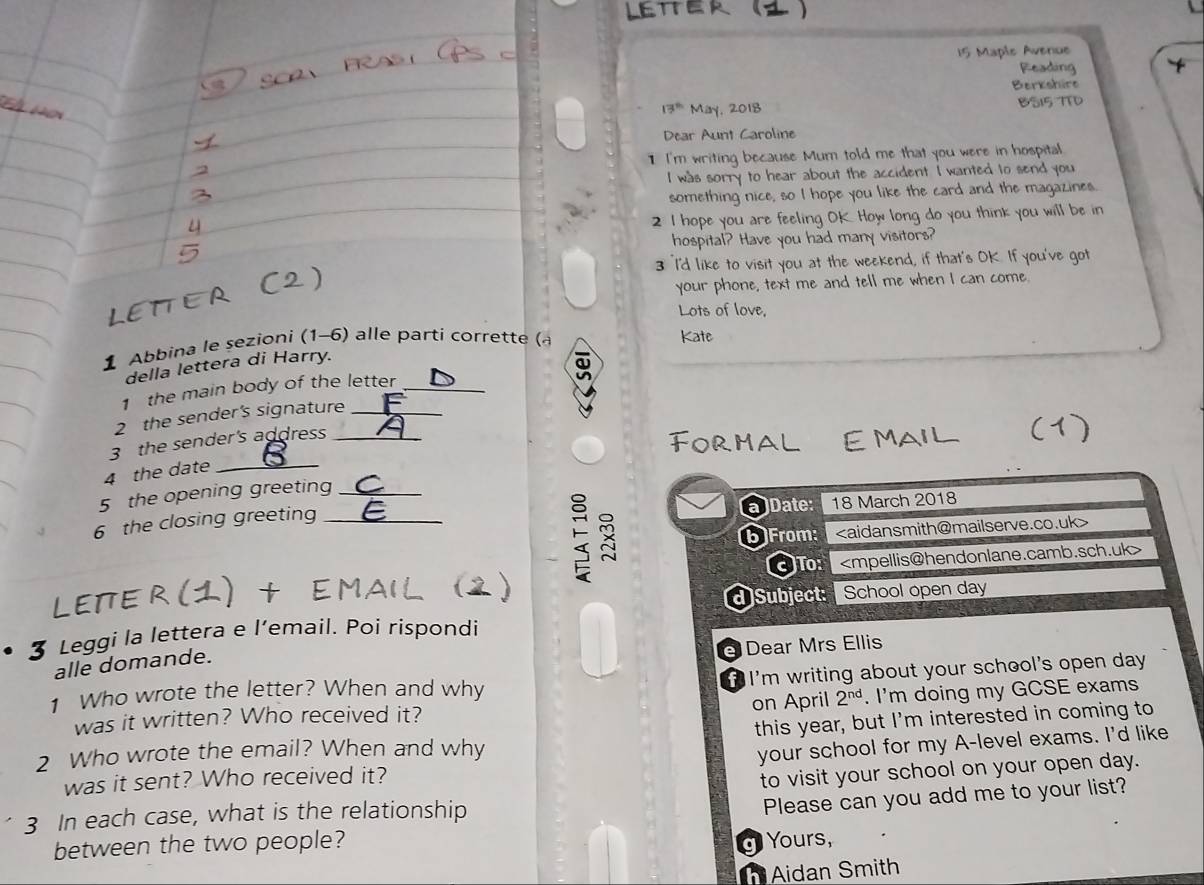 LETTER (1)
3 SCRI FRASI
1
2
3
4
5
LETTER (2)
1 Abbina le sezioni (1–6) alle parti corrette (a
della lettera di Harry.
1 the main body of the letter D
2 the sender's signature F
3 the sender's address A
4 the date B
5 the opening greeting C
6 the closing greeting E
LETTER (1) + EMAIL (2)
3 Leggi la lettera e l'email. Poi rispondi
alle domande.
1 Who wrote the letter? When and why
was it written? Who received it?
2 Who wrote the email? When and why
was it sent? Who received it?
3 In each case, what is the relationship
between the two people?
sei
ATLA T 100
22x30
15 Maple Avenue
Reading
Berkshire
BS15 7TD
13th May, 2018
Dear Aunt Caroline
1 I'm writing because Mum told me that you were in hospital.
I was sorry to hear about the accident. I wanted to send you
something nice, so I hope you like the card and the magazines.
2 I hope you are feeling OK. How long do you think you will be in
hospital? Have you had many visitors?
3 I'd like to visit you at the weekend, if that's OK. If you've got
your phone, text me and tell me when I can come.
Lots of love,
Kate
FORMAL EMAIL (1)
a Date: 18 March 2018
b From: <aidansmith@mailserve.co.uk>
c To: <mpellis@hendonlane.camb.sch.uk>
d Subject: School open day
e Dear Mrs Ellis
f I'm writing about your school's open day
on April 2nd. I'm doing my GCSE exams
this year, but I'm interested in coming to
your school for my A-level exams. I'd like
to visit your school on your open day.
Please can you add me to your list?
g Yours,
h Aidan Smith